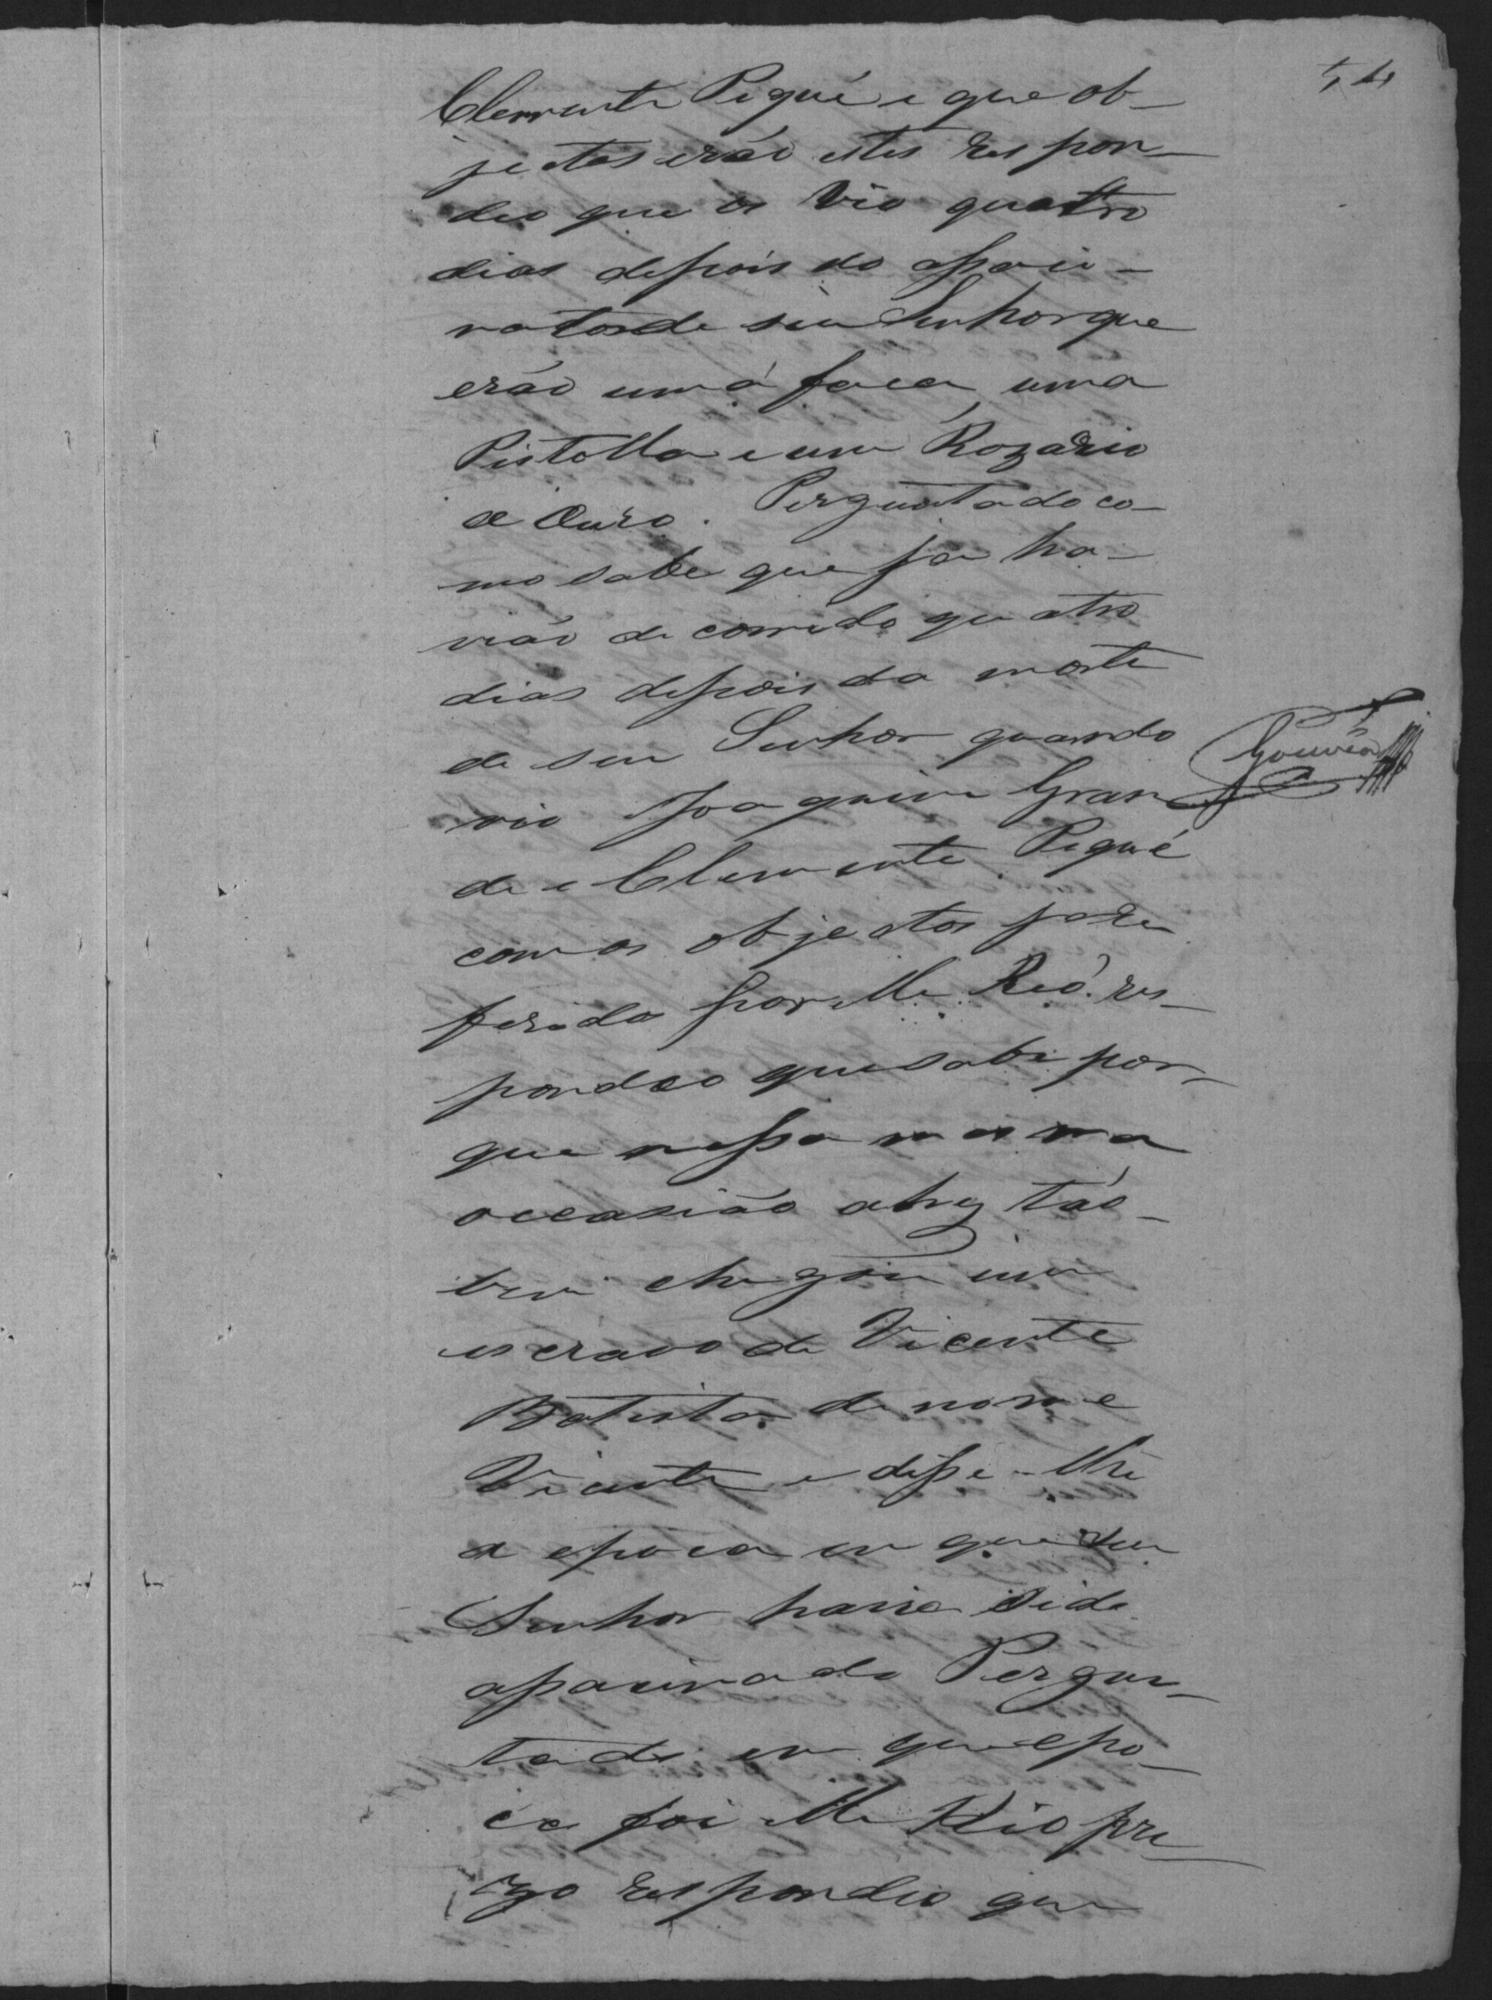 54
Clemente Piqué e que ob-
jectos erão estes respon-
deo que os vio quatro
dias depois do assaci-
nato de seu Senhor que
erão umá faca, uma
Pistolla e um Rozario
de Ouro. Perguntado co-
mo sabe que ja ha-
vião decorrido quatro
dias depois da morte
de seu Senhor quando
vio Joaquim Gran
de e Clemente Piqué
com os objectos ja re
ferido por elle Reó. res-
pondeo que sabe por-
que nessa mesma
occasião ahy tão-
bem chegou um
escravo de Vicente
Batista de nome
Vicente e disse-lhe
a epoca em que seu
Senhor havia sido
assacinado Pergun-
tado em que epo-
ca foi elle Reo pre-
zo respondeo que
Gouvêa